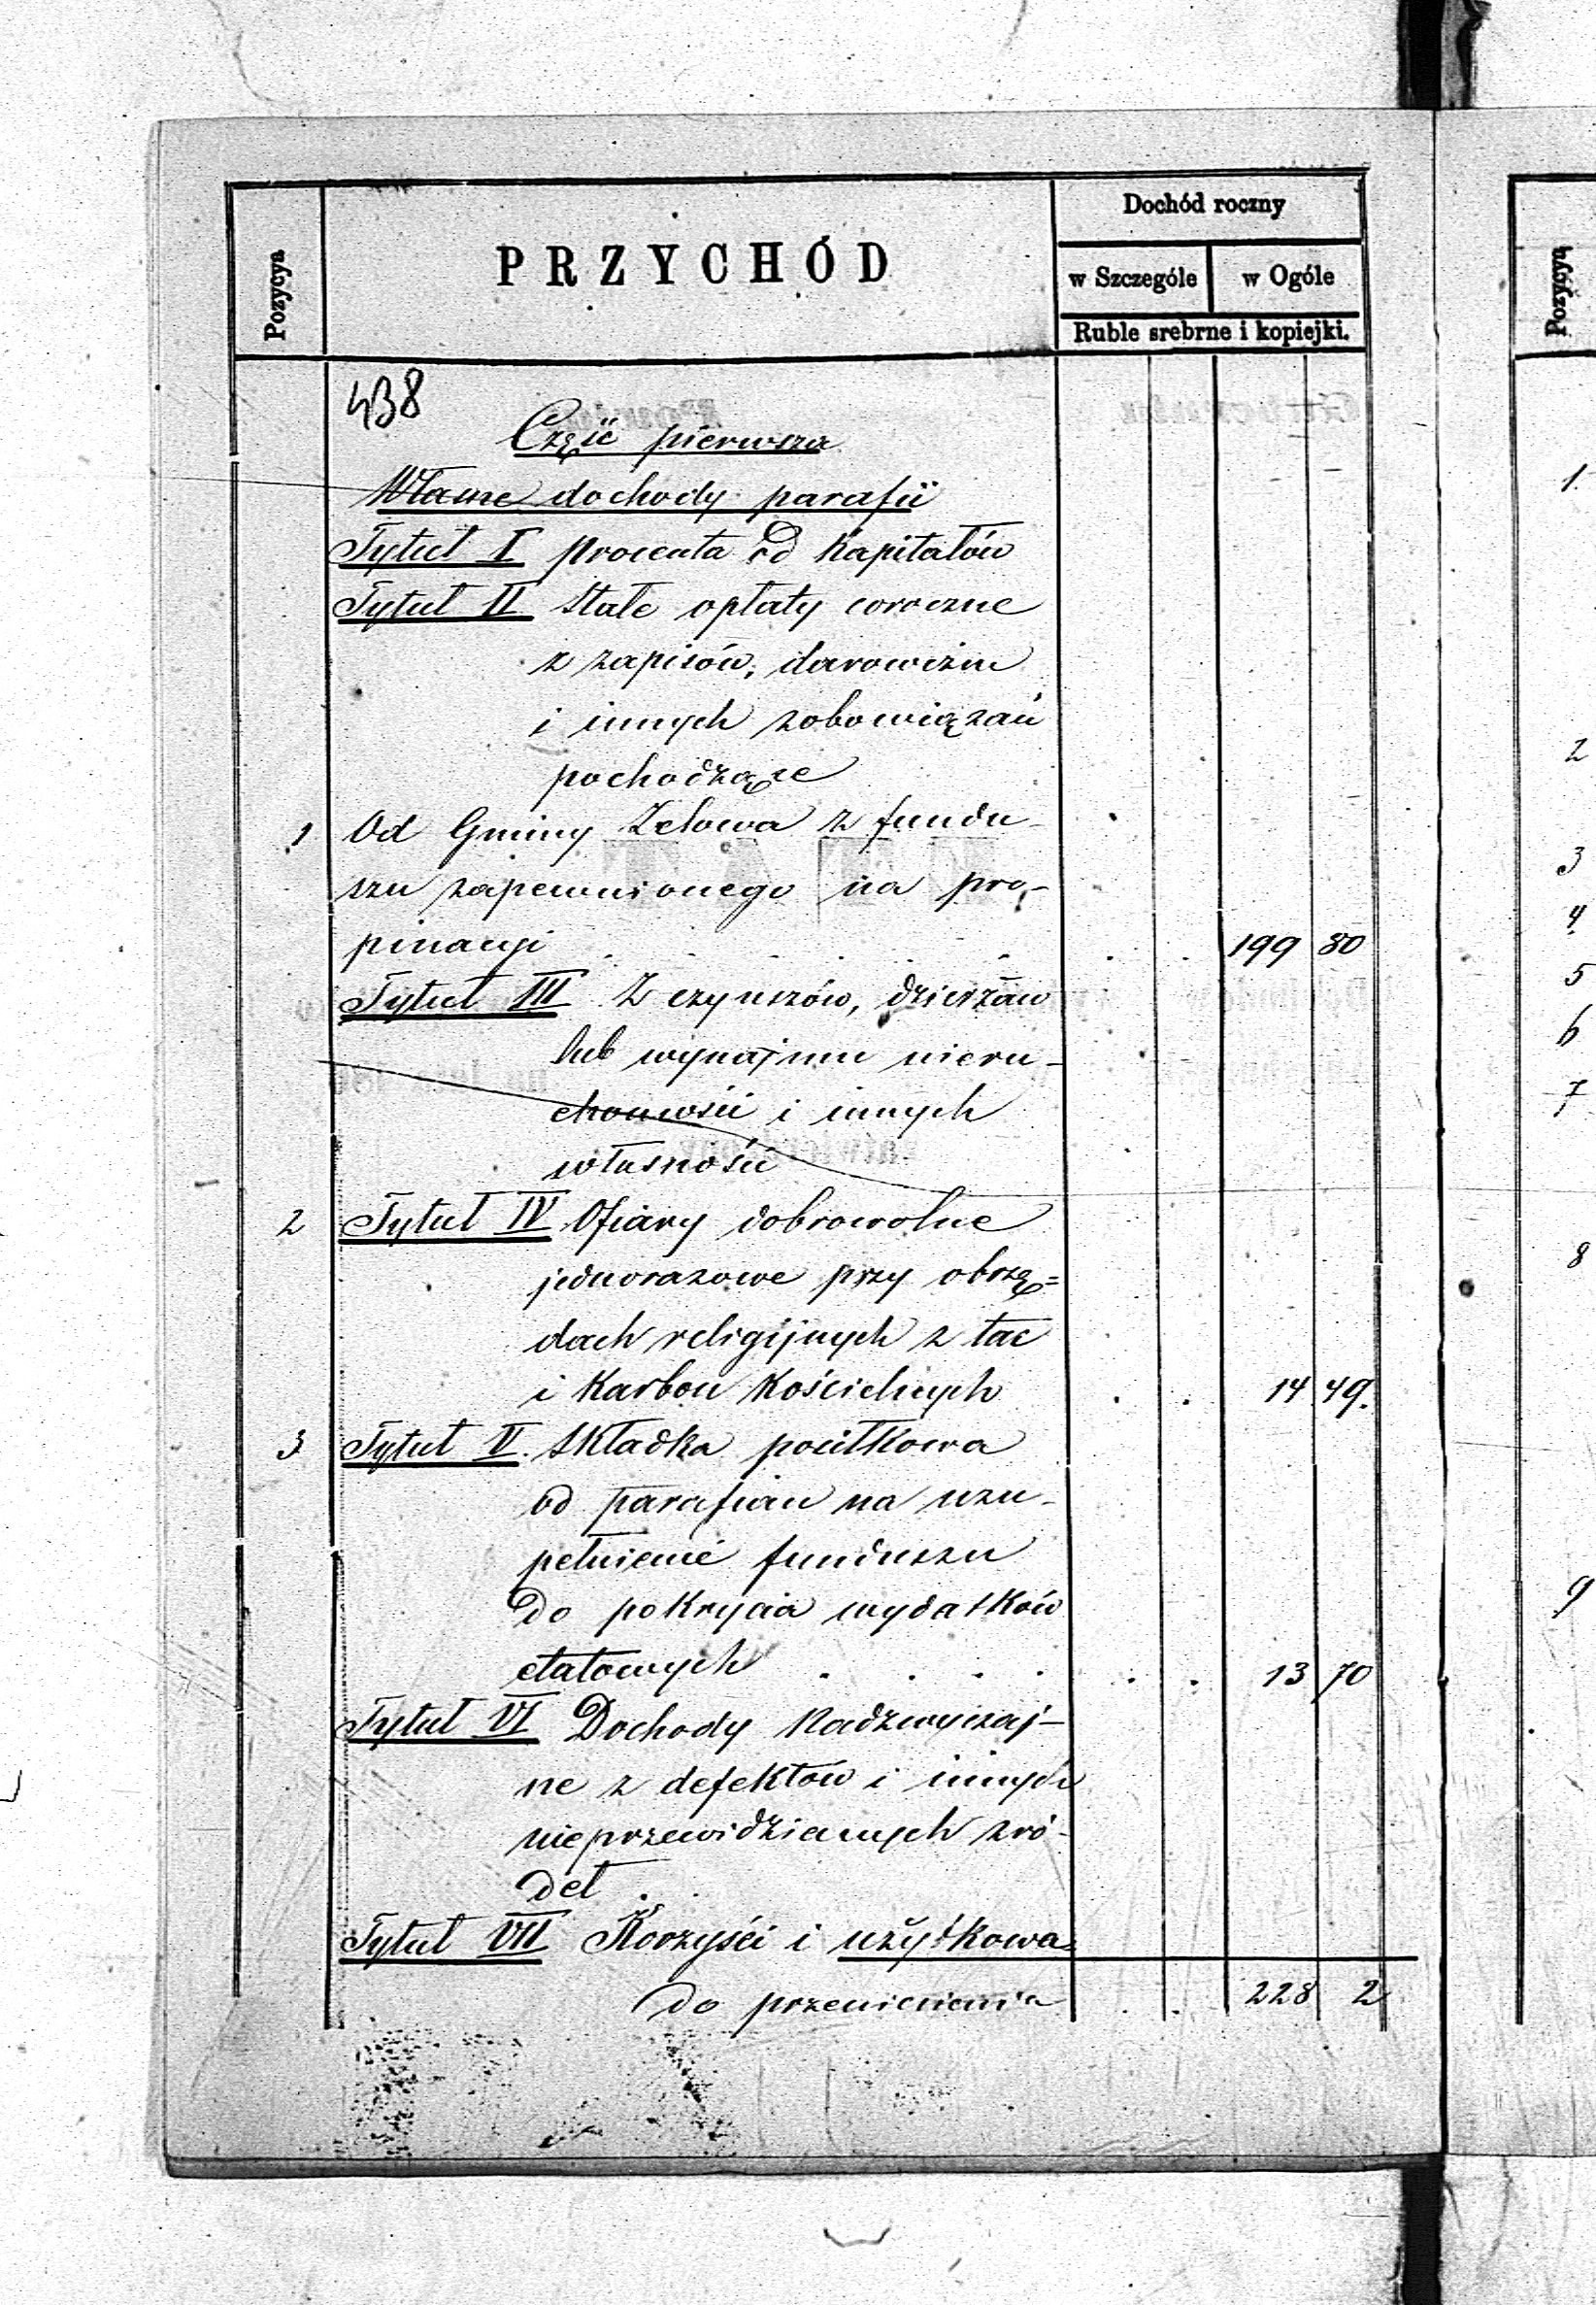 Pozycya
PRZYCHÓD
Dochód roczny
w Szczególe
w Ogóle
Ruble srebrne i kopiejki.
438
Część pierwsza
Własne dochody parafii
Tytuł I procenta od Kapitałów
Tytuł II Stałe opłaty coroczne
z zapisów, darowizn
i innych zobowiązań
pochodzące
1 Od Gminy Zelowa z fundu-
szu zapewnionego na pro-
pinacyi . . . . . . . 199 80
Tytuł III Z czynszów, dzierżaw
lub wynajmu nieru-
chomości i innych
własności
2 Tytuł IV Ofiary dobrowolne
jednorazowe przy obrzę=
dach religijnych z tac
i Karbon Kościelnych . . 14 49.
3 Tytuł V. Składka posiłkowa
od parafian na uzu-
pełnienie funduszu
do pokrycia wydatków
etatowych . . . . . . 13 70
Tytuł VI Dochody Nadzwyczaj-
ne z defektów i innych
nieprzewidzianych źró-
deł .
Tytuł VII Korzyści i użytkowa=
do przeniesienia . . 228 2
Pozycya
1.
2
3
4
5
6
7
8
9